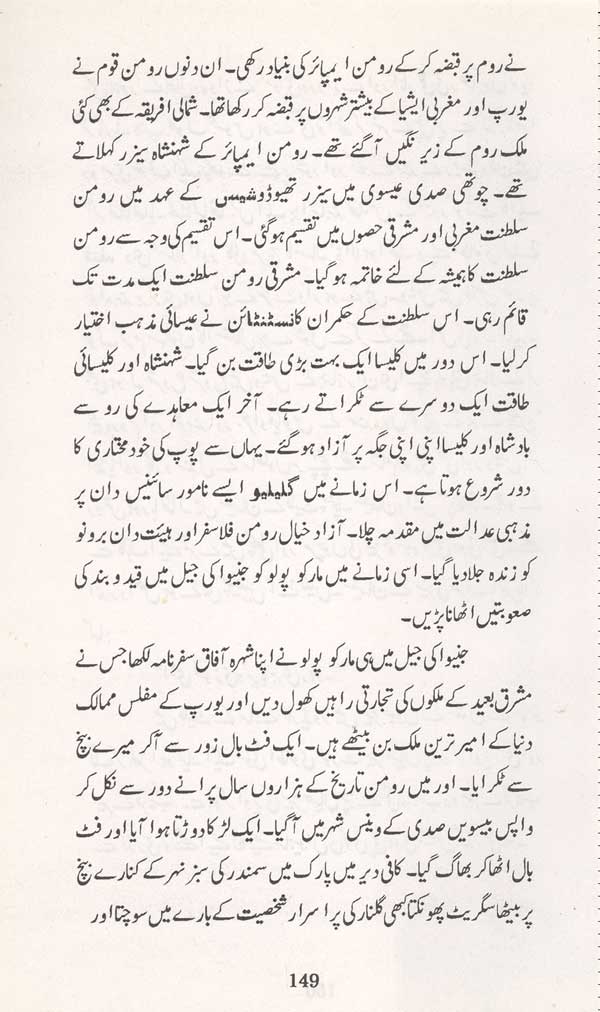 نے روم پر قبضہ کر کے رومن ایمپائر کی بنیاد رکھی۔ ان دنوں رومن قوم نے
یورپ اور مغربی ایشیا کے بیشتر شہروں پر قبضہ کر رکھا تھا۔ شمالی افریقہ کے بھی کئی
ملک روم کے زیر نگیں آ گئے تھے۔ رومن ایمپائر کے شہنشاہ سیزر کہلاتے
تھے۔ چوتھی صدی عیسوی میں سیزر تھیوڈوشیس کے عہد میں رومن
سلطنت مغربی اور مشرقی حصوں میں تقسیم ہو گئی۔ اس تقسیم کی وجہ سے رومن
سلطنت کا ہمیشہ کے لئے خاتمہ ہو گیا۔ مشرقی رومن سلطنت ایک مدت تک
قائم رہی۔ اس سلطنت کے حکمران کانسٹنٹائن نے عیسائی مذہب اختیار
کر لیا۔ اس دور میں کلیسا ایک بہت بڑی طاقت بن گیا۔ شہنشاہ اور کلیسائی
طاقت ایک دوسرے سے ٹکراتے رہے۔ آخر ایک معاہدے کی رو سے
بادشاہ اور کلیسا اپنی اپنی جگہ پر آزاد ہو گئے۔ یہاں سے پوپ کی خود مختاری کا
دور شروع ہوتا ہے۔ اس زمانے میں گلیلیو ایسے نامور سائنس دان پر
مذہبی عدالت میں مقدمہ چلا۔ آزاد خیال رومن فلاسفر اور ہیئت دان برونو
کو زندہ جلا دیا گیا۔ اسی زمانے میں مارکو پولو کو جنیوا کی جیل میں قید و بند کی
صعوبتیں اٹھانا پڑیں۔
جنیوا کی جیل میں ہی مارکو پولو نے اپنا شہرہ آفاق سفرنامہ لکھا جس نے
مشرق بعید کے ملکوں کی تجارتی راہیں کھول دیں اور یورپ کے مفلس ممالک
دنیا کے امیر ترین ملک بن بیٹھے ہیں۔ ایک فٹ بال زور سے آ کر میرے بنچ
سے ٹکرایا۔ اور میں رومن تاریخ کے ہزاروں سال پرانے دور سے نکل کر
واپس بیسویں صدی کے وینس شہر میں آ گیا۔ ایک لڑکا دوڑتا ہوا آیا اور فٹ
بال اٹھا کر بھاگ گیا۔ کافی دیر میں پارک میں سمندر کی سبز نہر کے کنارے بنچ
پر بیٹھا سگریٹ پھونکتا کبھی گلنار کی پراسرار شخصیت کے بارے میں سوچتا اور
149